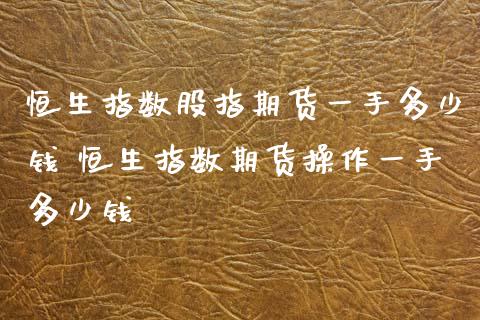 恒生指数股指期货一手多少
钱 恒生指数期货操作一手
多少钱